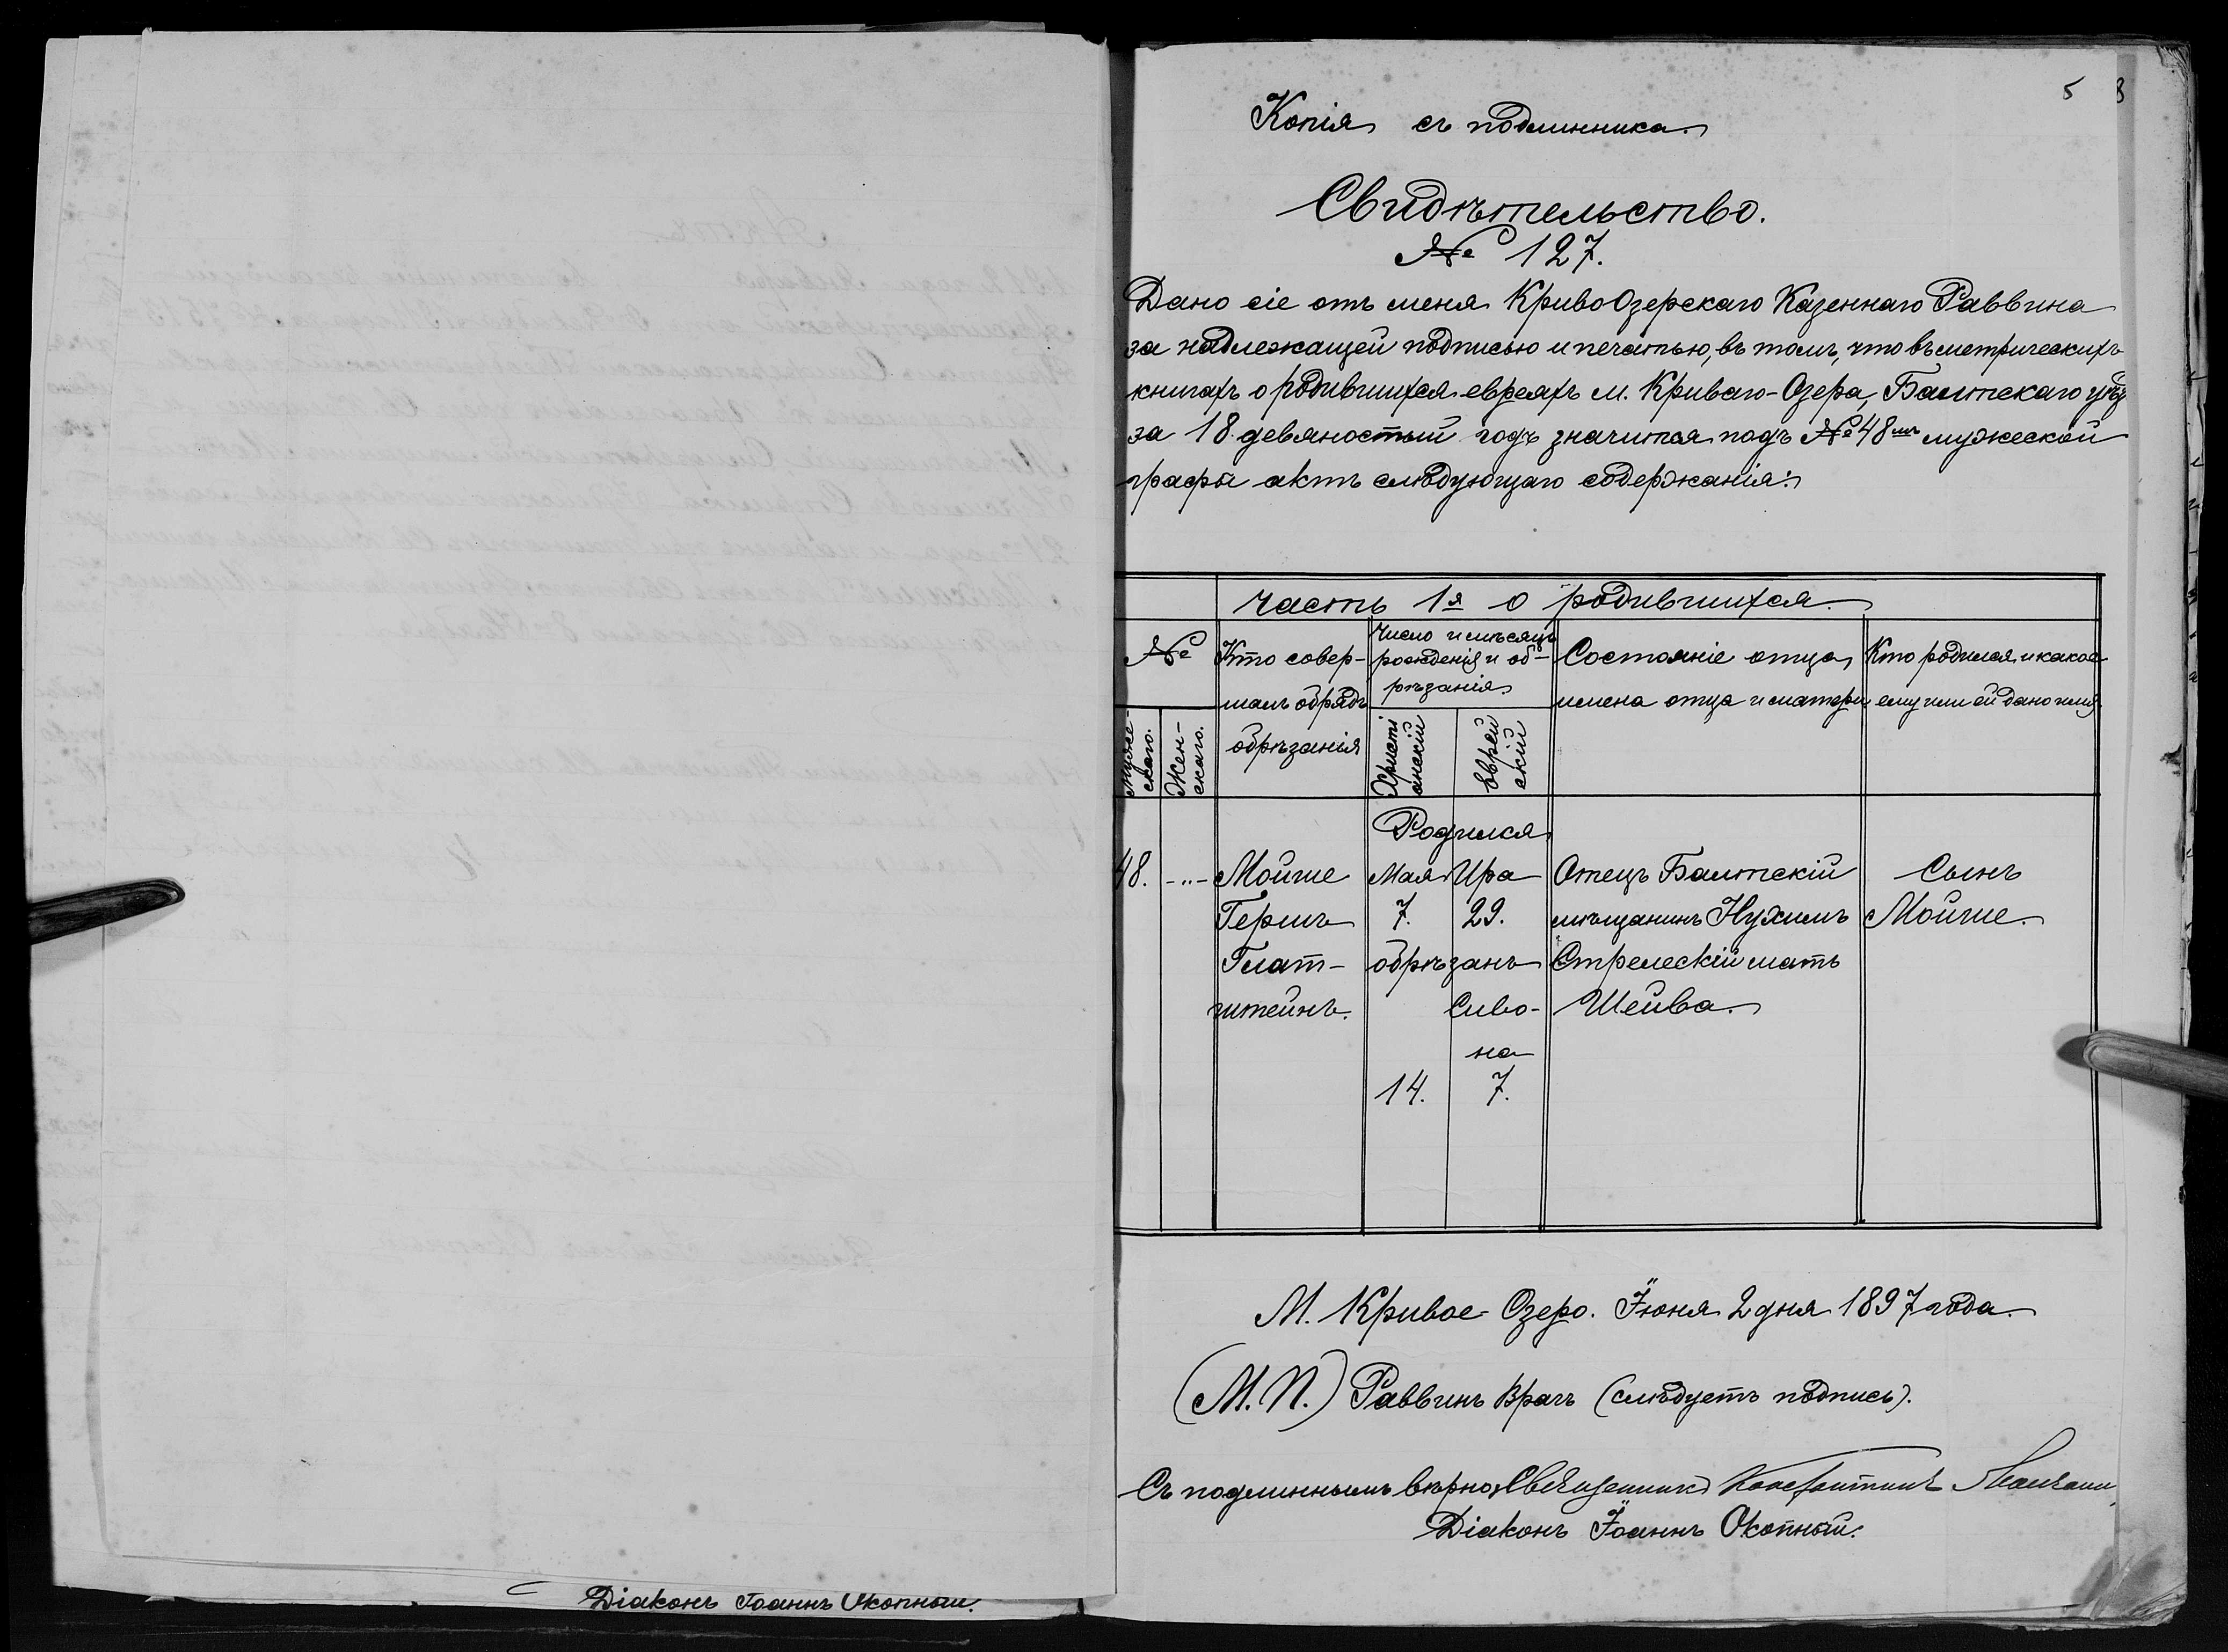 5 8
Копія съ подлинника.
Свидѣтельство.
№ 127.
Дано сіе отъ меня КривоОзерскаго Казеннаго Раввина
за надлежащей подписью и печатью, въ томъ, что въ метрическихъ
книгахъ о родившихся евреяхъ м. Криваго-Озера, Балтскаго уѣзд
за 18 девяностый годъ значится подъ № 48мъ мужеской
графы актъ слѣдующаго содержанія:
Часть 1я о родившихся
№
Муже-
скаго.
Жен-
скаго.
Кто совер-
шалъ обрядъ
обрѣзанія
Число и мѣсяцъ
рожденія и об-
рѣзанія
Христі
анскій
Еврей
скій
Состояніе отца,
имена отца и матери
Кто родился и какое
ему или ей дано имя
Родился
48. -„- Мойше Мая Ира Отецъ Балтскій Сынъ
Гершъ 7. 29. мѣщанинъ Нухимъ Мойше.
Глат- обрѣзанъ Стрелескій мать
штейнъ. Сиво- Шейва.
на
14. 7.
М. Кривое-Озеро. Іюня 2 дня 1897 года.
(М.П.) Раввинъ Врачъ (слѣдуетъ подпись).
Съ подлиннымъ вѣрно: Священникъ Константинъ
Діаконъ Іоаннъ Окопный.
Діаконъ Іоаннъ Окопный.